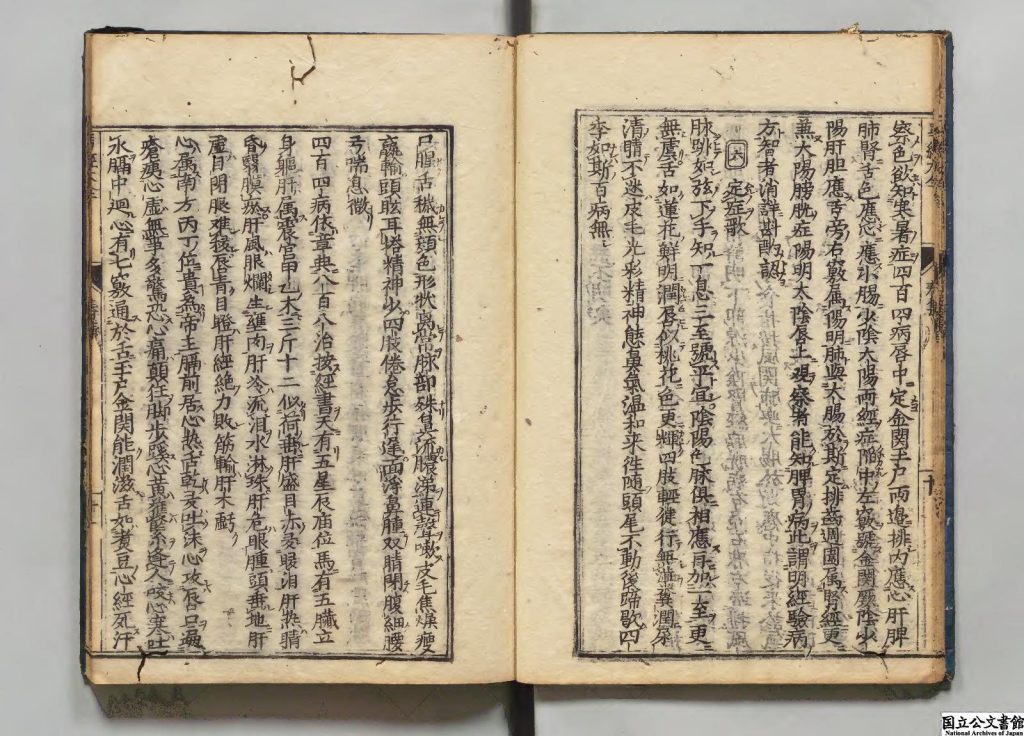 察色欲知寒暑症四百四病唇中定金関玉戸両邉排内應心肝脾
肺腎舌色應心應小腸少陰太陽両經症陥中左竅號金関厥陰少
陽肝胆應舌旁右竅属陽明肺與大腸於斯定排齒週圍属腎經更
兼太陽膀胱症陽明太陰唇上現察者能知脾胃病此謂明經驗病
方智者消詳斟酌認
六 定症歌
脉跡如弦下手知一息二至號平宜陰陽色脉倶相應再加一至更
無虞舌如蓮花鮮明潤唇似桃花色更輝四肢輕健行無滞糞潤溺
清臕不迷皮毛光彩精神態鼻氣温和来徃随頭尾不動後蹄歇四
李如斯百病無
口腥舌穢無類色形状寓常脉部殊鼻流膿涕連聲嗽皮毛焦燥瘦
羸輸頭眩耳塔精神少四肢倦怠歩行遲面浮鼻腫双睛閉腹細腰
弓喘息微
四百四病依章典八百八治按經書天有五星辰庙位馬有五臓立
身軀肝属震宮甲乙木三斤十二似荷𦾔肝盛目赤多眼泪肝熱睛
昏翳膜瘀肝風眼爛生瘫肉肝冷流泪水淋珠肝危眼腫頭垂地肝
虚目閉眼難移唇青目瞪肝經絶力敗筋輸肝木虧
心属南方丙丁位貴為帝主膈前居心热舌乾多吐沫心攻唇口遍
瘡痍心虚無事多驚恐心痛顛狂脚歩蹊心黄癕緊条逢人咬心寒吐
水膈中迴心有七竅通於舌玉戸金関能潤滋舌如煮豆心經死汗
国立公文書館
National Archives of Japan